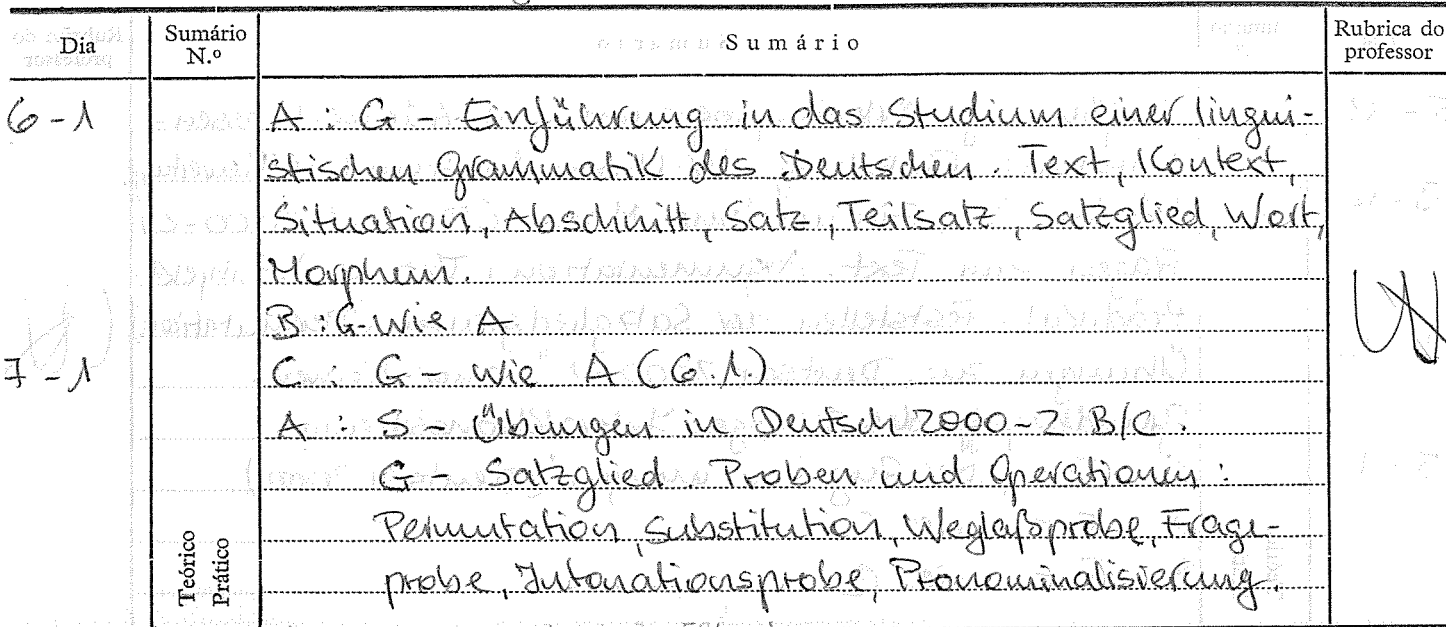 Dia Sumário N.º Sumário Rubrica do professor
6-1 A : G - Einführung in das Studium einer lingui-
stischen Grammatik des Deutschen. Text, Kontext,
Situation, Abschnitt, Satz, Teilsatz, Satzglied, Wort,
Morphem.
B : G - Wie A
7-1 C : G - Wie A (6.1.)
A : S - Übungen in Deutsch 2000-2 B/C.
G - Satzglied. Proben und Operationen :
Permutation, Substitution, Weglaßprobe, Frage-
probe, Intonationsprobe, Pronominalisierung.
Teórico
Prático